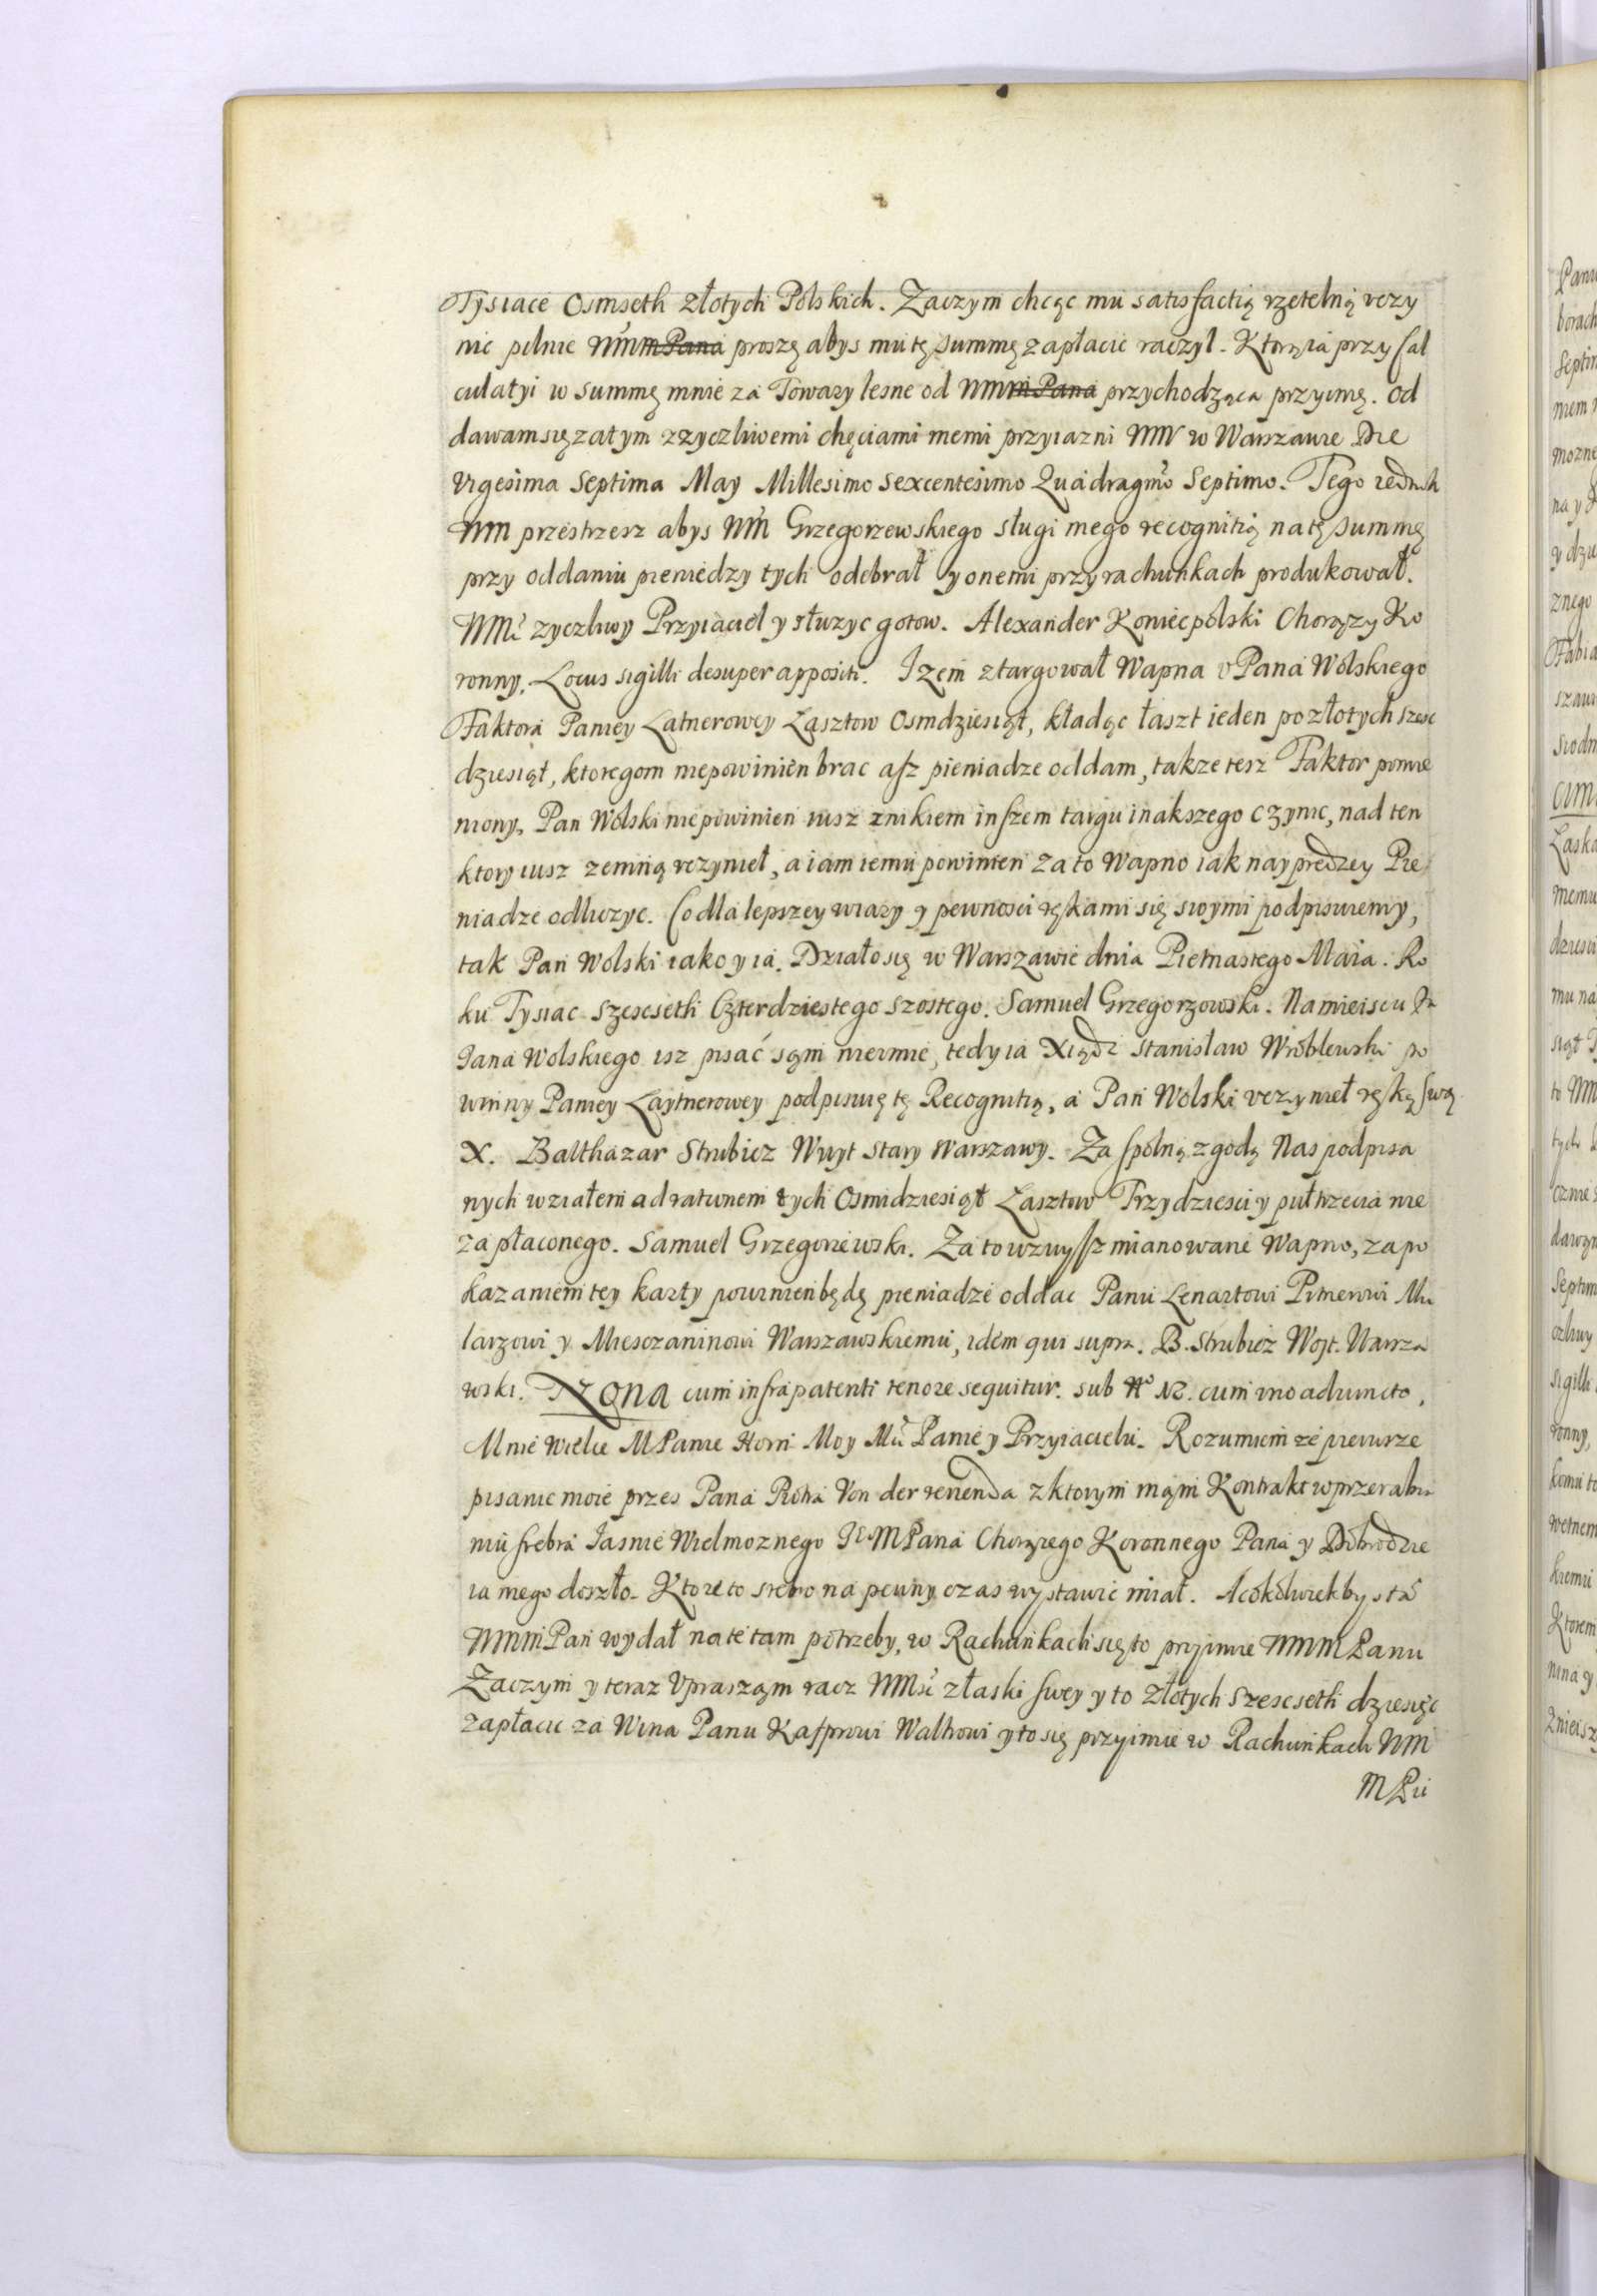 Tysiace Osmseth złotych Polskich. Zaczym chcąc mu satisfactią rzetelną vczy
nic pilnie WMmPana proszę abys mu tę summę zapłacic raczył. Ktorą ia przy Cal
culatyi w summę mnie za Towary lesne od WMmPana przychodząca przyimę. Od
dawam się zatym zzyczliwemi chęciami memi przyiazni WM w Warszawie Die
Vigesima Septima May Millesimo Sexcentesimo Quadragmo Septimo. Tego iednak
WM przestrzesz abys WM Grzegorzewskiego sługi mego recognitią na tę summę
przy oddaniu pieniedzy tych odebrał y onemi przy rachunkach produkował.
WMci zyczliwy Przyiaciel y słuzyc gotow. Alexander Koniecpolski Chorązy Ko
ronny. Locus sigilli desuper appositi. Izem ztargował Wapna v Pana Wolskiego
Faktora Paniey Latnerowey Lasztow Osmdziesiąt, kładąc łaszt ieden po złotych szesc
dziesiąt, ktoregom niepowinien brac asz pieniadze oddam, takze tesz Faktor pomie
niony, Pan Wolski niepowinien iusz znikiem inszem targu inakszego czynic, nad ten
ktory iusz zemną vczynieł, a iam iemu powinien za to Wapno iak nayprędzey Pie
niadze odliczyc. Co dla lepszey wiary y pewnosci rękami się swoymi podpisuiemy,
tak Pan Wolski iako y ia. Działo się w Warszawie dnia Pietnastego Maia. Ro
ku Tysiac szescseth Czterdziestego szostego. Samuel Grzegorzowski. Na mieiscu
Jana Wolskiego isz pisać sąm nieumie, tedy ia Xiądz Stanisław Wroblewski po
winny Paniey Laytnerowey podpisuię tę Recognitią, a Pan Wolski vczynieł ręką swą
X. Balthazar Strubicz Wuyt Stary Warszawy. Za spolną zgodą Nas podpisa
nych wziałem ad ratunem tych Osmidziesiąt Lasztow Trzydziesci y pułtrzecia nie
zapłaconego. Samuel Grzegorzewski. Za to wzwysz mianowane Wapno, za po
kazaniem tey karty powinien będę pieniadze oddac Panu Lenartowi Pitnerowi Mu
larzowi y Miesczaninowi Warszawskiemu, idem qui supra. B. Strubicz Woyt. Warsza
wski. Nona cum infra patenti tenore sequitur. sub No 12. cum uno adiuncto.
Mnie Wielce MPanie Horn Moy Mci Panie y Przyiacielu. Rozumiem ze pierwsze
pisanie moie przes Pana Piotra Von der renenda z ktorym mąm Kontrakt w przerabia
niu srebra Jasnie Wielmoznego Je MPana Chorązego Koronnego Pana y Dobrodzie
ia mego doszło. Ktore to srebro na pewny czas wystawic miał. A cokolwiek bys ta
WMmPan wydał na te tam potrzeby, w Rachunkach się to przyimie WMMPanu
Zaczym y teraz Vpraszam racz WMsc złaski swey y to złotych szescseth dziesięc
zapłacic za Wina Panu Kasprowi Waltrowi y to się przyimie w Rachunkach WM
MPu